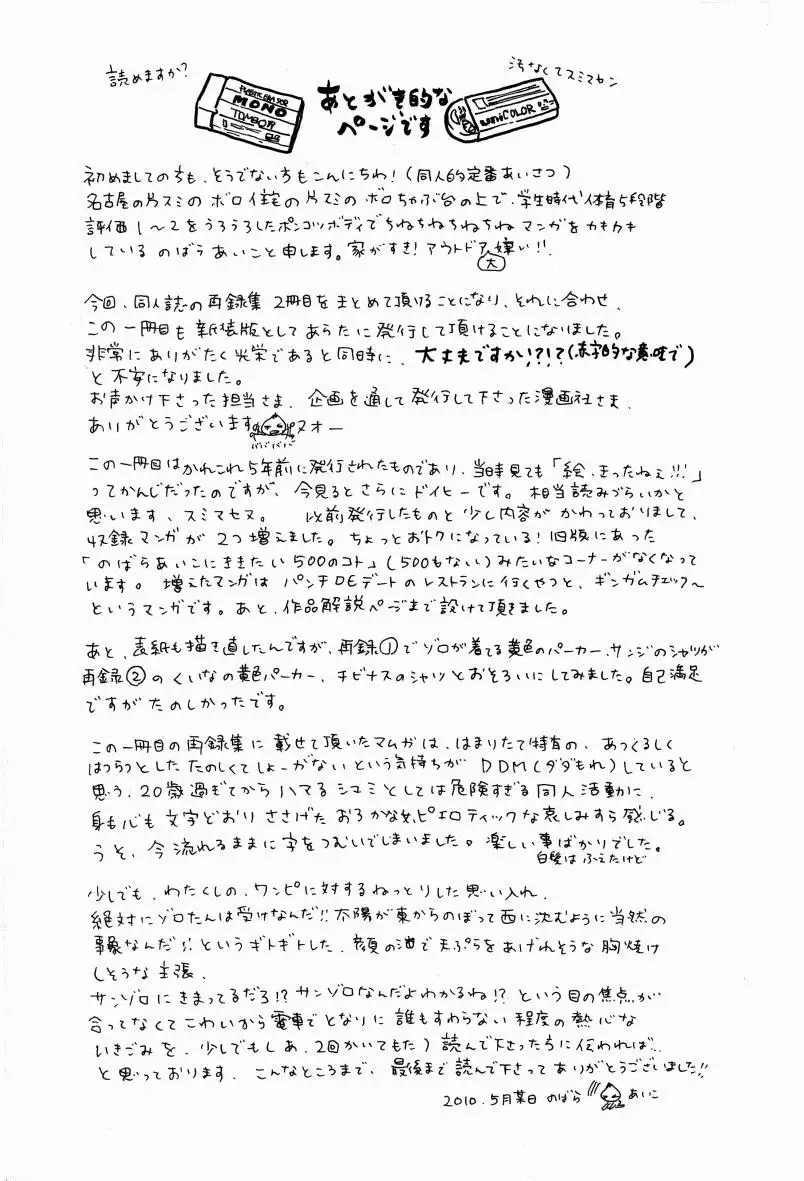 読めますか?
汚なくてスミマセン
PLASTIC ERASER
MONO
TOMBOW
あとがき的な
ページです
uni COLOR
初めましての方も、そうでない方もこんにちわ!(同人的定番あいさつ)
名古屋の片スミの ボロ住宅の片スミの ボロちゃぶ台の上で、学生時代体育5段階
評価 1~2をうろうろしたポンコツボディでちねちねちねちね マンガをカキカキ
している のばらあいこと申します。家がすき!アウトドア大嫌い!!
今回、同人誌の再録集 2冊目をまとめて頂けることになり、それに合わせ、
この一冊目も新装版としてあらたに発行して頂けることになりました。
非常にありがたく光栄であると同時に、大丈夫ですか!?!?(赤字的な意味で)
と不安になりました。
お声かけ下さった担当さま、企画を通して発行して下さった漫画社さま、
ありがとうございます ババババ ヌオー
この一冊目はかれこれ5年前に発行されたものであり、当時見ても「絵、きったねぇ!!!」
ってかんじだったのですが、今見るとさらにドイヒーです。相当読みづらいかと
思います、スミマセヌ。 以前発行したものと少し内容がかわっておりまして、
収録マンガが2つ増えました。ちょっとおトクになっている!旧版にあった
「のばらあいこにききたい500のコト」(500もない)みたいなコーナーがなくなって
います。 増えたマンガは パンチDEデートのレストランに行くやつと、ギンガムチェック~
というマンガです。あと、作品解説ページまで設けて頂きました。
あと、表紙も描き直したんですが、再録①でゾロが着てる黄色のパーカー、サンジのシャツが
再録②のくいなの黄色パーカー、チビナスのシャツとおそろいにしてみました。自己満足
ですがたのしかったです。
この一冊目の再録集に載せて頂いたマムガは、はまりたて特有の、あつくるしく
はつらつとしたたのしくてしょーがないという気持ちがDDM(ダダもれ)していると
思う、20歳過ぎてからハマるシュミとしては危険すぎる同人活動に、
身も心も文字どおりささげたおろかな女、ピエロティックな哀しみすら感じる。
うそ、今流れるままに字をつむいでしまいました。楽しい事ばかりでした。
白髪はふえたけど
少しでも、わたくしの、ワンピに対するねっとりした思い入れ、
絶対にゾロたんは受けなんだ!!太陽が東からのぼって西に沈むように当然の
事象なんだ!!というギトギトした、顔の油で天ぷらをあげれそうな胸焼け
しそうな主張、
サンゾロにきまってるだろ!?サンゾロなんだよわかるね!?という目の焦点が
合ってなくてこわいから電車でとなりに誰もすわらない程度の熱心な
いきごみを、少しでも(あ、2回かいてもた)読んで下さった方に伝われば…
と思っております。こんなところまで、最後まで読んで下さってありがとうございました!!
2010.5月某日 のばら あいこ